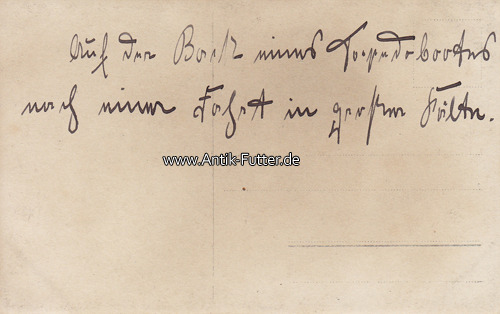 Auf der Back eines Torpedobootes
nach einer Fahrt in grosser Kälte.
www.Antik-Futter.de